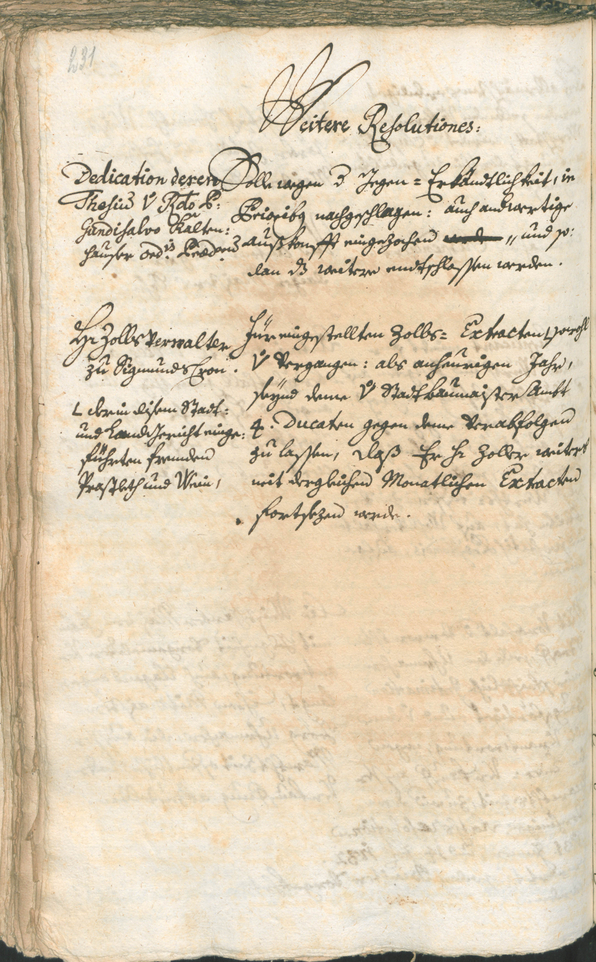 231
Weitere Resolutiones:
Dedication deren
Thesius V. Rdo P:
Gandisalvo Kalten:
hauser ord: 
Solle wegen d Gegen= Erkandtlichkeit, in
nachgeschlagen: auch andwertige
Auskonfft eingezochen und so:
dan ds weitere endtschlossen werden.
Hr Zolls Verwalter
zu Sigmunds Cron.
L der in disem Stadt:
und Landtgericht einge:
führten fremden
und Wein,
für eingestellten Zolls= Extracten, sowohl
V Vergangen: als anheurigen Jahr,
seynd deme V Stadtbaumaister Ambt
4. Ducaten gegen deme Verabfolgen
zu lassen, dass Er Hr Zoller weiters
mit dergleichen Monatlichen Extracten
fortsezen werde.